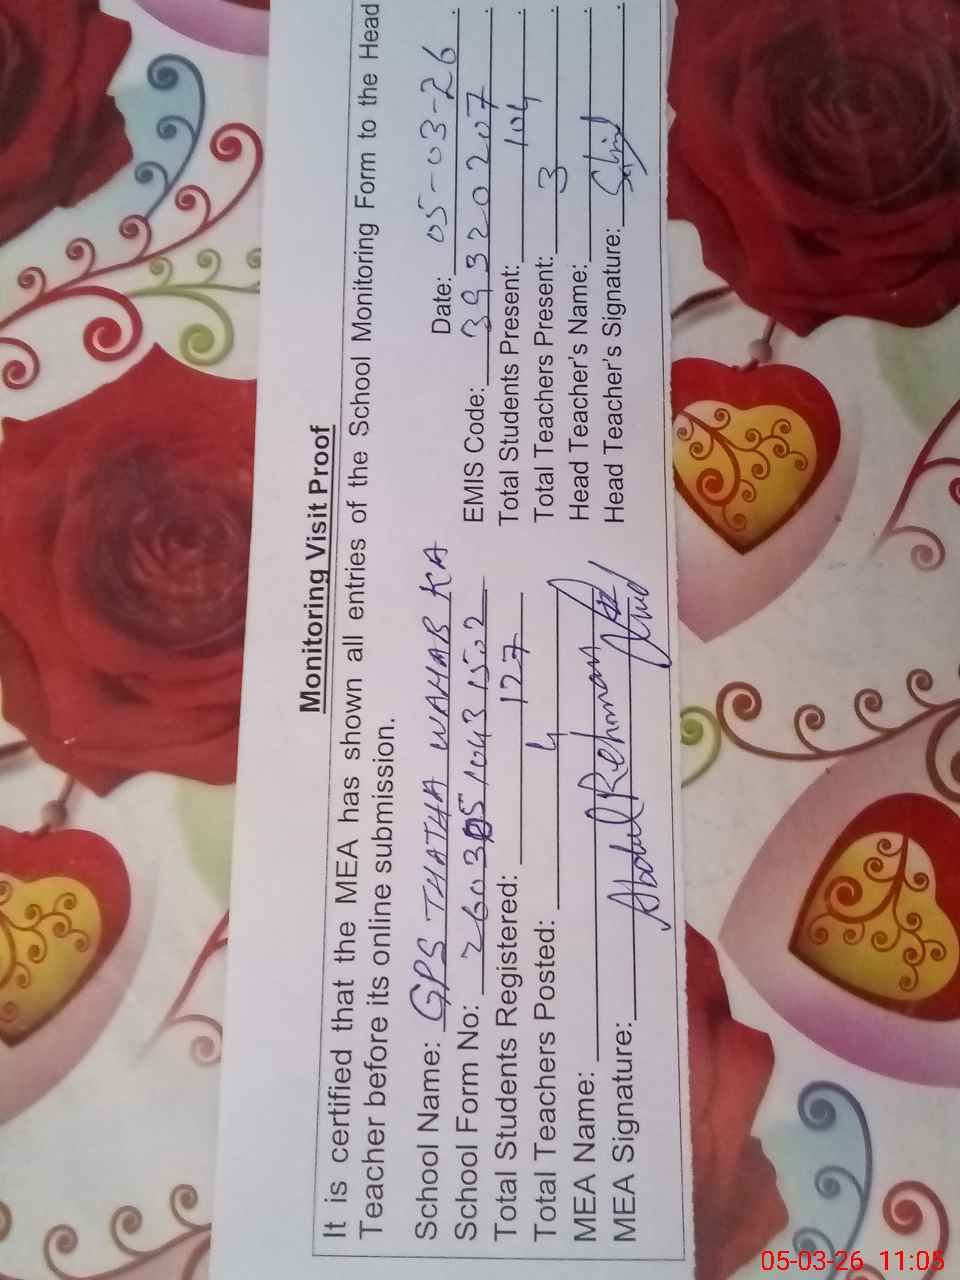 Monitoring Visit Proof
It is certified that the MEA has shown all entries of the School Monitoring Form to the Head
Teacher before its online submission.
Date: 05-03-26
School Name: GPS THATHA WAHAB KA
EMIS Code: 39320207
School Form No:
Total Students Registered: 127
Total Students Present: 104
Total Teachers Posted: 4
Total Teachers Present: 3
MEA Name: Abdul Rehman
Head Teacher's Name:
MEA Signature:
Head Teacher's Signature:
05-03-26 11:05